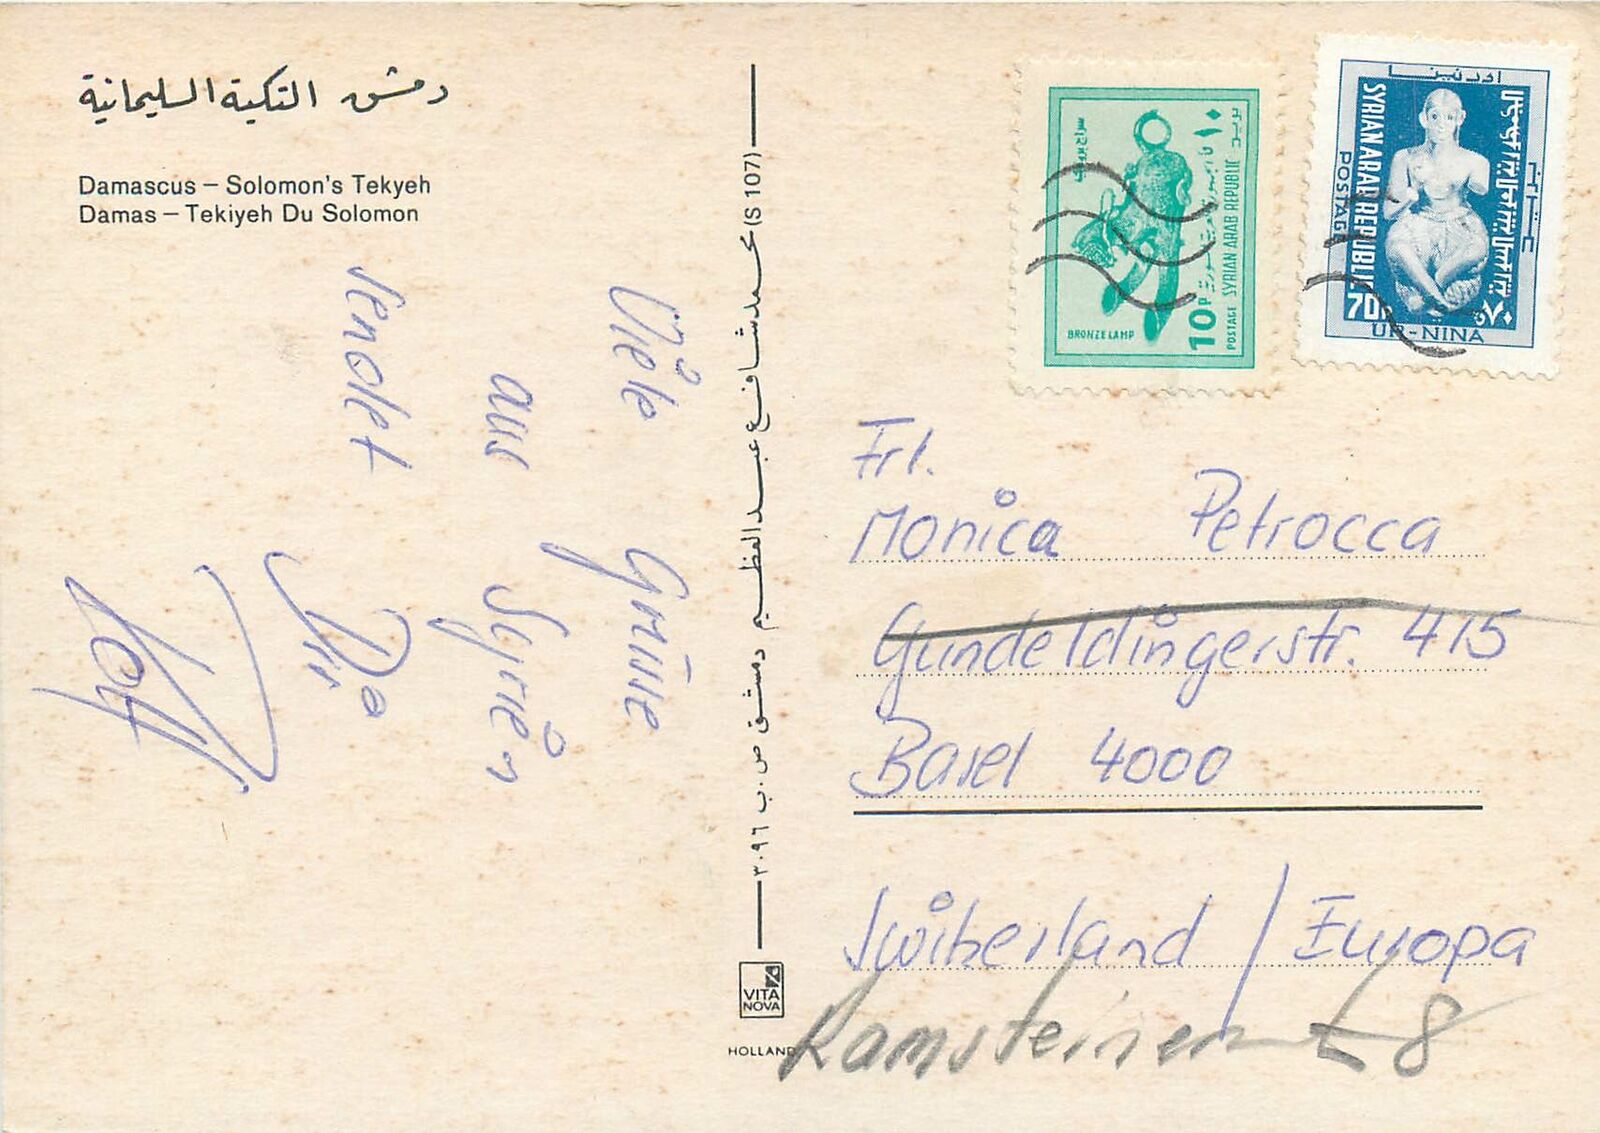 دمشق التكية السليمانية
Damascus – Solomon's Tekyeh
Damas – Tekiyeh Du Solomon
Viele Grüsse
aus Syrien
sendet Dir
Rolf
محمد شافع عبد العظيم دمشق ص.ب ٣٠٩٦ (S 107)
VITA
NOVA
HOLLAND
سراج برونز
BRONZE LAMP
10P
١٠
POSTAGE SYRIAN ARAB REPUBLIC
بريد
اورنينا
SYRIAN ARAB REPUBLIC
POSTAGE
70
٧٠
UR-NINA
Frl.
Monica Petrocca
Gundeldingerstr. 415
Basel 4000
Switzerland / Europa
Ramsteinerstr 8